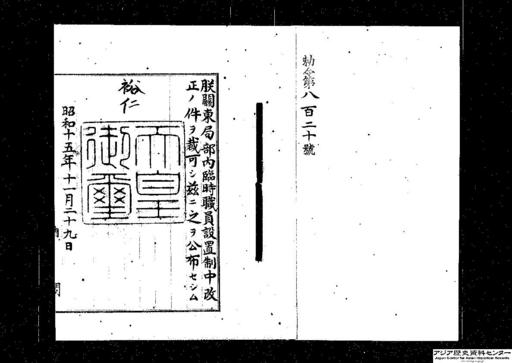 勅令第八百二十號
朕關東局部內臨時職員設置制中改
正ノ件ヲ裁可シ茲ニ之ヲ公布セシム
裕仁
天皇御璽
昭和十五年十一月二十九日
アジア歴史資料センター
Japan Center for Asian Historical Records